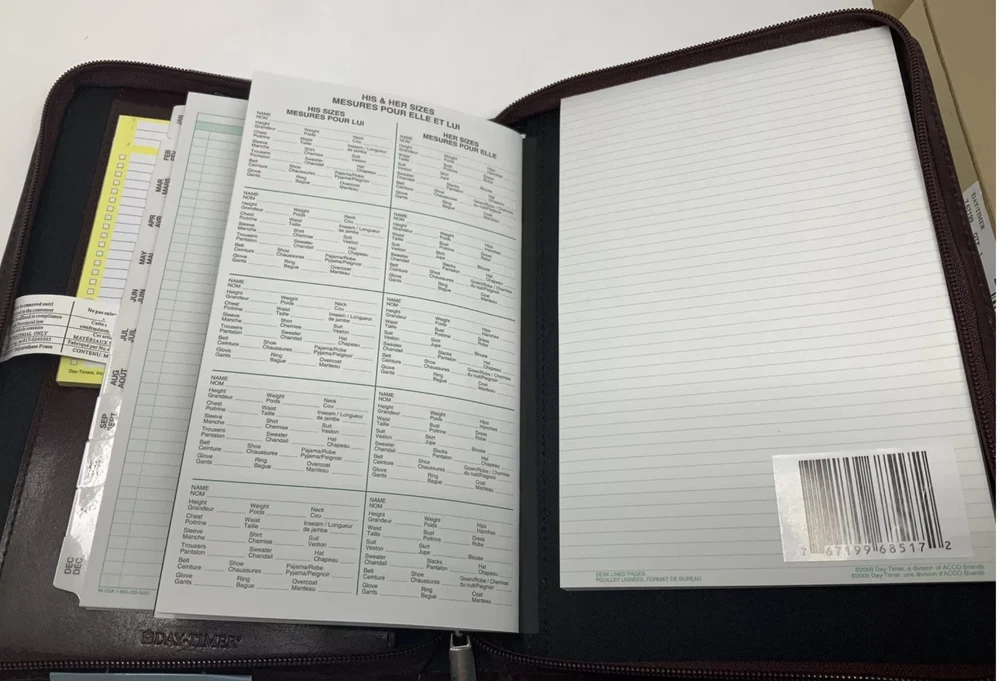 JAN
FEB
FÉV
MAR
MARS
APR
AVR
MAY
MAI
JUN
JUIN
JUL
JUIL
AUG
AOÛT
SEP
SEPT
DEC
DÉC
MATÉRIAUX
CONTENU:
Day-Timers, Inc
ÉDAY-TIMER®
HIS & HER SIZES
MESURES POUR ELLE ET LUI
HIS SIZES
MESURES POUR LUI
NAME
NOM
Height Weight Neck
Grandeur Poids Cou
Chest Waist Inseam / Longueur
Poitrine Taille de jambe
Sleeve Shirt Suit
Manche Chemise Veston
Trousers Sweater Hat
Pantalon Chandail Chapeau
Belt Shoe Pajama/Robe
Ceinture Chaussures Pyjama/Peignoir
Glove Ring Overcoat
Gants Bague Manteau
NAME
NOM
Height Weight Neck
Grandeur Poids Cou
Chest Waist Inseam / Longueur
Poitrine Taille de jambe
Sleeve Shirt Suit
Manche Chemise Veston
Trousers Sweater Hat
Pantalon Chandail Chapeau
Belt Shoe Pajama/Robe
Ceinture Chaussures Pyjama/Peignoir
Glove Ring Overcoat
Gants Bague Manteau
NAME
NOM
Height Weight Neck
Grandeur Poids Cou
Chest Waist Inseam / Longueur
Poitrine Taille de jambe
Sleeve Shirt Suit
Manche Chemise Veston
Trousers Sweater Hat
Pantalon Chandail Chapeau
Belt Shoe Pajama/Robe
Ceinture Chaussures Pyjama/Peignoir
Glove Ring Overcoat
Gants Bague Manteau
NAME
NOM
Height Weight Neck
Grandeur Poids Cou
Chest Waist Inseam / Longueur
Poitrine Taille de jambe
Sleeve Shirt Suit
Manche Chemise Veston
Trousers Sweater Hat
Pantalon Chandail Chapeau
Belt Shoe Pajama/Robe
Ceinture Chaussures Pyjama/Peignoir
Glove Ring Overcoat
Gants Bague Manteau
NAME
NOM
Height Weight Neck
Grandeur Poids Cou
Chest Waist Inseam / Longueur
Poitrine Taille de jambe
Sleeve Shirt Suit
Manche Chemise Veston
Trousers Sweater Hat
Pantalon Chandail Chapeau
Belt Shoe Pajama/Robe
Ceinture Chaussures Pyjama/Peignoir
Glove Ring Overcoat
Gants Bague Manteau
HER SIZES
MESURES POUR ELLE
NAME
NOM
Height Weight Hips
Grandeur Poids Hanches
Waist Bust Dress
Taille Poitrine Robe
Suit Skirt
Veston Jupe
Sweater Slacks Blouse
Chandail Pantalon
Belt Shoe Gown/Robe / Chemise
Ceinture Chaussures du nuit/Peignoir
Glove Ring Coat
Gants Bague Manteau
NAME
NOM
Height Weight Hips
Grandeur Poids Hanches
Waist Bust Dress
Taille Poitrine Robe
Suit Skirt
Veston Jupe
Sweater Slacks Blouse
Chandail Pantalon
Belt Shoe Gown/Robe / Chemise
Ceinture Chaussures du nuit/Peignoir
Glove Ring Coat
Gants Bague Manteau
NAME
NOM
Height Weight Hips
Grandeur Poids Hanches
Waist Bust Dress
Taille Poitrine Robe
Suit Skirt
Veston Jupe
Sweater Slacks Blouse
Chandail Pantalon
Belt Shoe Gown/Robe / Chemise
Ceinture Chaussures du nuit/Peignoir
Glove Ring Coat
Gants Bague Manteau
NAME
NOM
Height Weight Hips
Grandeur Poids Hanches
Waist Bust Dress
Taille Poitrine Robe
Suit Skirt
Veston Jupe
Sweater Slacks Blouse
Chandail Pantalon
Belt Shoe Gown/Robe / Chemise
Ceinture Chaussures du nuit/Peignoir
Glove Ring Coat
Gants Bague Manteau
NAME
NOM
Height Weight Hips
Grandeur Poids Hanches
Waist Bust Dress
Taille Poitrine Robe
Suit Skirt
Veston Jupe
Sweater Slacks Blouse
Chandail Pantalon
Belt Shoe Gown/Robe / Chemise
Ceinture Chaussures du nuit/Peignoir
Glove Ring Coat
Gants Bague Manteau
7 67199 68517 2
DESK LINED PAGES
FEUILLES LIGNÉES, FORMAT DE BUREAU
©2009 Day-Timer, a division of ACCO Brands
©2009 Day-Timer, une division d'ACCO Brands
DAY-TIMER